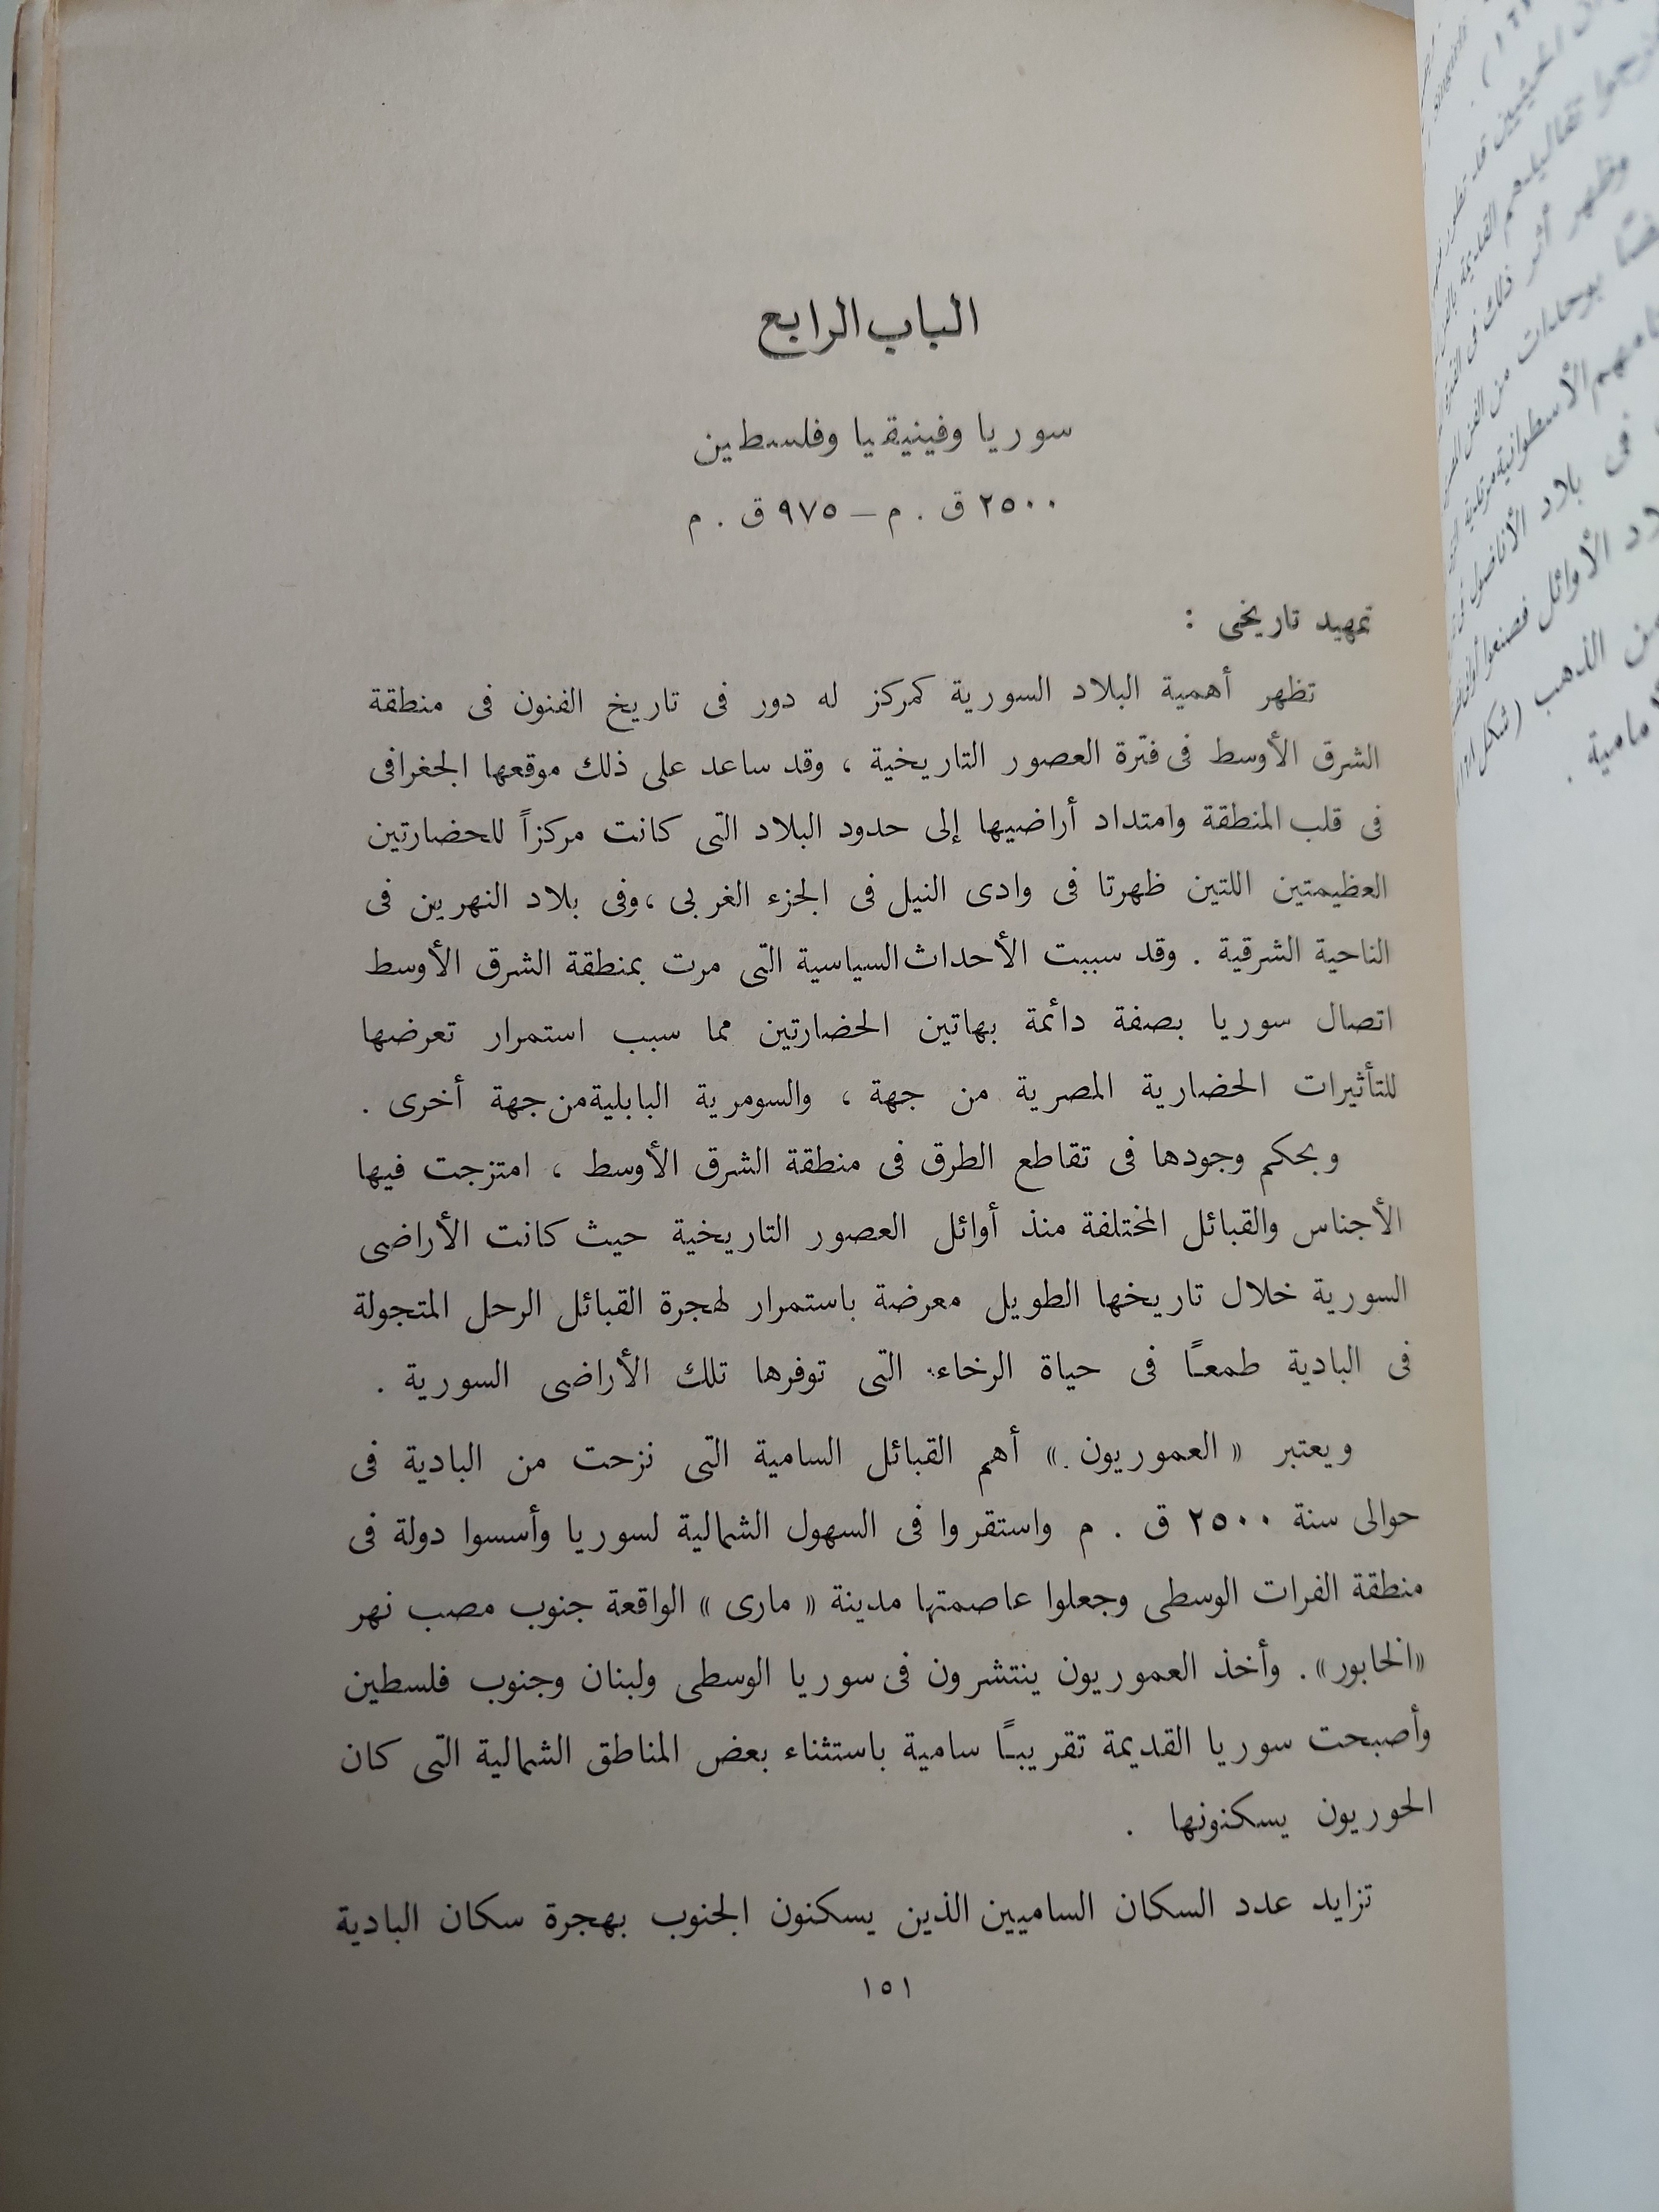 الباب الرابع
سوريا وفينيقيا وفلسطين
٢٥٠٠ ق . م – ٩٧٥ ق . م
تمهيد تاريخى :
تظهر أهمية البلاد السورية كمركز له دور فى تاريخ الفنون فى منطقة
الشرق الأوسط فى فترة العصور التاريخية ، وقد ساعد على ذلك موقعها الجغرافى
فى قلب المنطقة وامتداد أراضيها إلى حدود البلاد التى كانت مركزاً للحضارتين
العظيمتين اللتين ظهرتا فى وادى النيل فى الجزء الغربى ، وفى بلاد النهرين فى
الناحية الشرقية . وقد سببت الأحداث السياسية التى مرت بمنطقة الشرق الأوسط
اتصال سوريا بصفة دائمة بهاتين الحضارتين مما سبب استمرار تعرضها
للتأثيرات الحضارية المصرية من جهة ، والسومرية البابلية من جهة أخرى .
وبحكم وجودها فى تقاطع الطرق فى منطقة الشرق الأوسط ، امتزجت فيها
الأجناس والقبائل المختلفة منذ أوائل العصور التاريخية حيث كانت الأراضى
السورية خلال تاريخها الطويل معرضة باستمرار لهجرة القبائل الرحل المتجولة
فى البادية طمعـًا فى حياة الرخاء التى توفرها تلك الأراضى السورية .
ويعتبر « العموريون » أهم القبائل السامية التى نزحت من البادية فى
حوالى سنة ٢٥٠٠ ق . م واستقروا فى السهول الشمالية لسوريا وأسسوا دولة فى
منطقة الفرات الوسطى وجعلوا عاصمتها مدينة « مارى » الواقعة جنوب مصب نهر
«الخابور» . وأخذ العموريون ينتشرون فى سوريا الوسطى ولبنان وجنوب فلسطين
وأصبحت سوريا القديمة تقريبـًا سامية باستثناء بعض المناطق الشمالية التى كان
الحوريون يسكنونها .
تزايد عدد السكان الساميين الذين يسكنون الجنوب بهجرة سكان البادية
١٥١